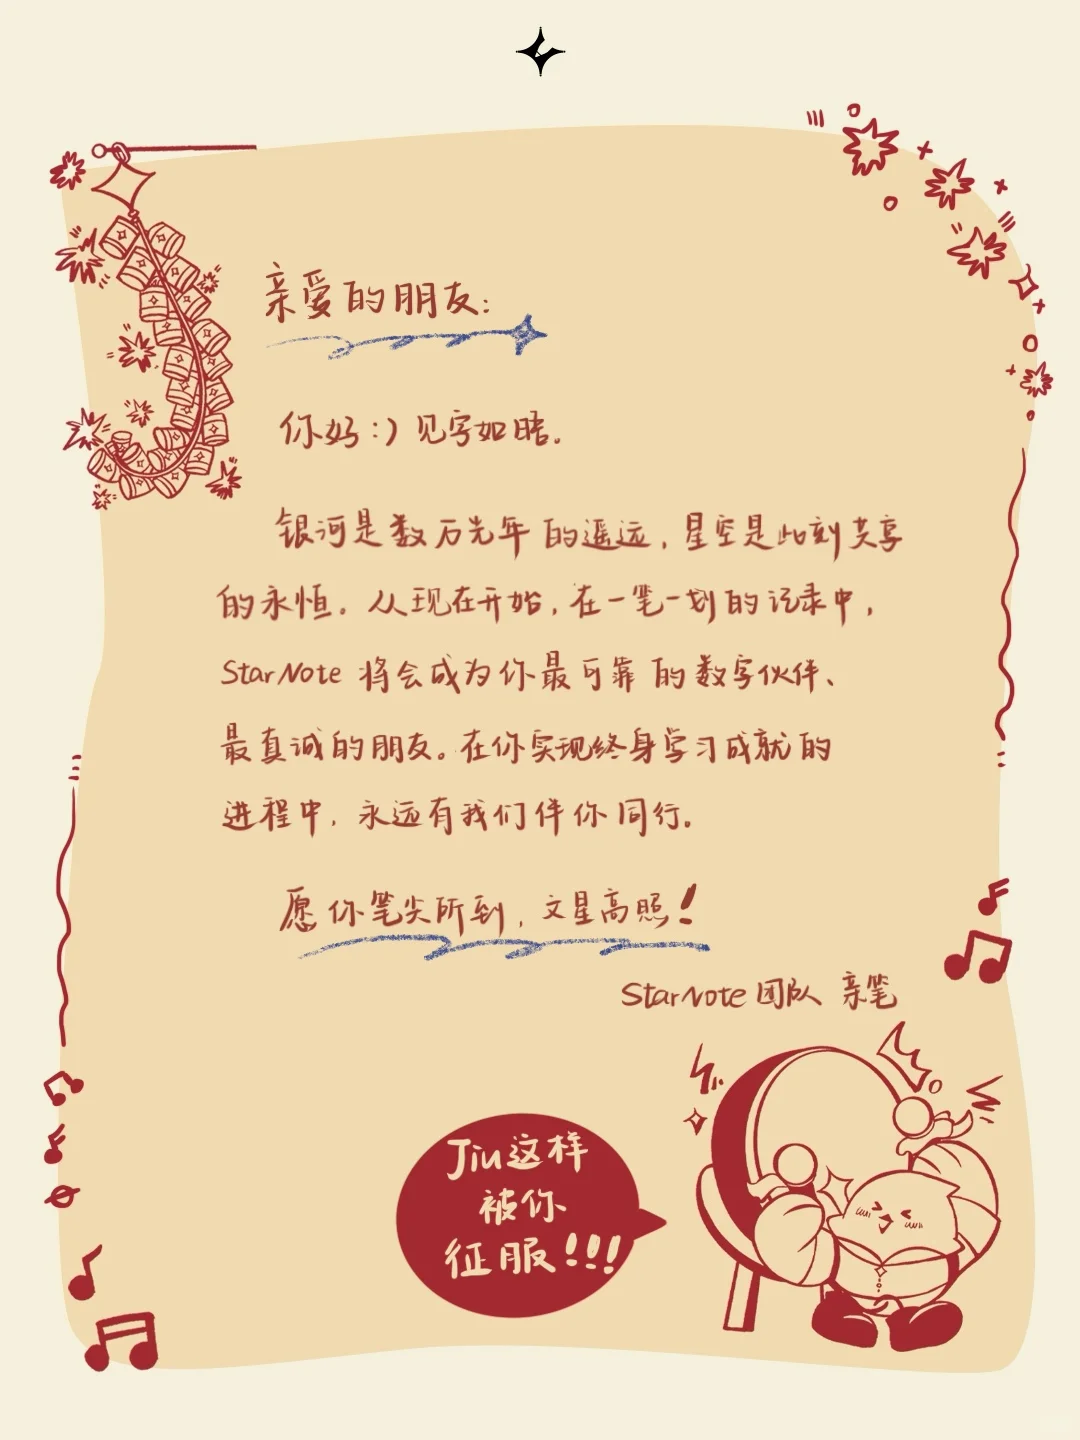 亲爱的朋友：
你好：）见字如晤。
银河是数万光年的遥远，星空是此刻共享
的永恒。从现在开始，在一笔一划的记录中，
StarNote 将会成为你最可靠的数字伙伴、
最真诚的朋友。在你实现终身学习成就的
进程中，永远有我们伴你同行。
愿你笔尖所到，文星高照！
StarNote 团队 亲笔
Jiu这样
被你
征服！！！